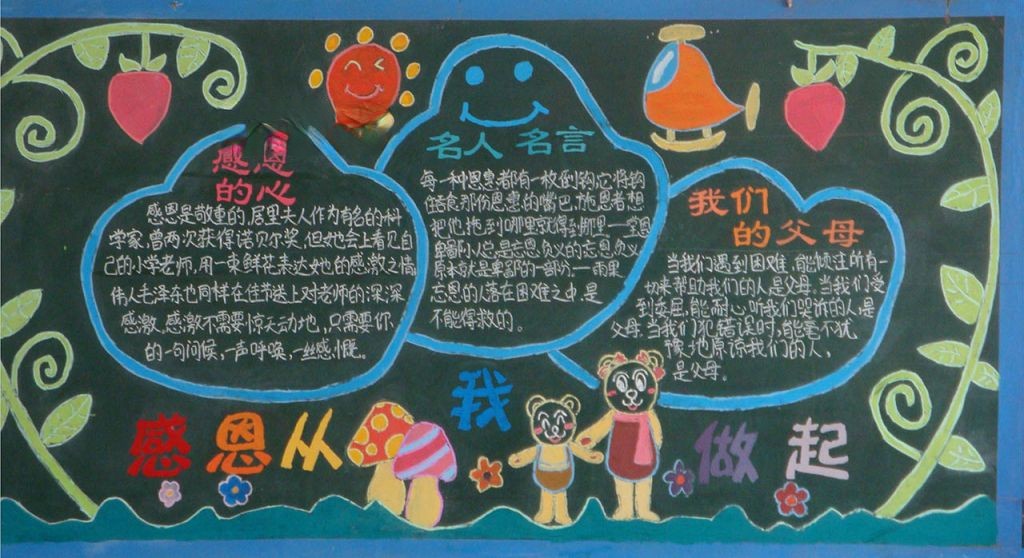 感恩
的心
感恩是敬重的,居里夫人作为有名的科
学家,曾两次获得诺贝尔奖,但她会上看见自
己的小学老师,用一束鲜花表达她的感激之情
伟人毛泽东也同样在佳节送上对老师的深深
感激,感激不需要惊天动地,只需要你
的一句问候,一声呼唤,一丝感慨。
名人 名言
每一种恩惠都有一枚倒钩,它将钩
住吞食那份恩惠的嘴巴,施恩者想
把他拖到哪里就得到哪里——堂恩
卑鄙小人总是忘恩负义的忘恩负义
原本就是卑鄙的一部分——雨果
忘恩的人落在困难之中,是
不能得救的。
我们
的父母
当我们遇到困难,能倾注所有一
切来帮助我们的人是父母.当我们受
到委屈,能耐心听我们哭诉的人是
父母.当我们犯错误时,能毫不犹
豫地原谅我们的人,
是父母。
感恩从我做起